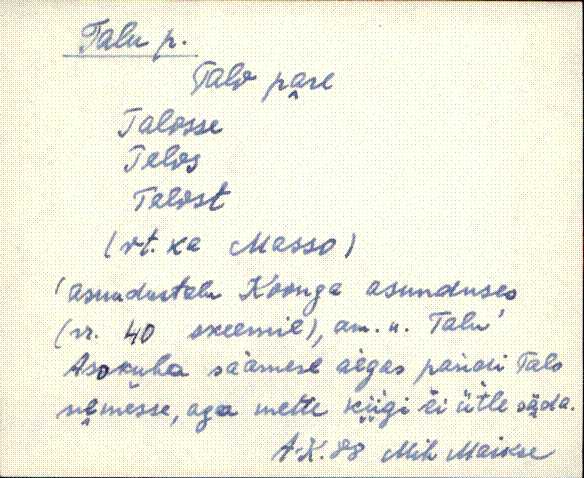 Talu p.
Talo pære
Talosse
Talos
Talost
(vt. ka Masso)
'asundustalu Koonga asunduses
(nr. 40 skeemil), am. n. Talu'
Asokuha saamese aegas pandi Talo
nemesse, aga mette kiigi ei ütle säda.
A-K. 88 Mih Maikse